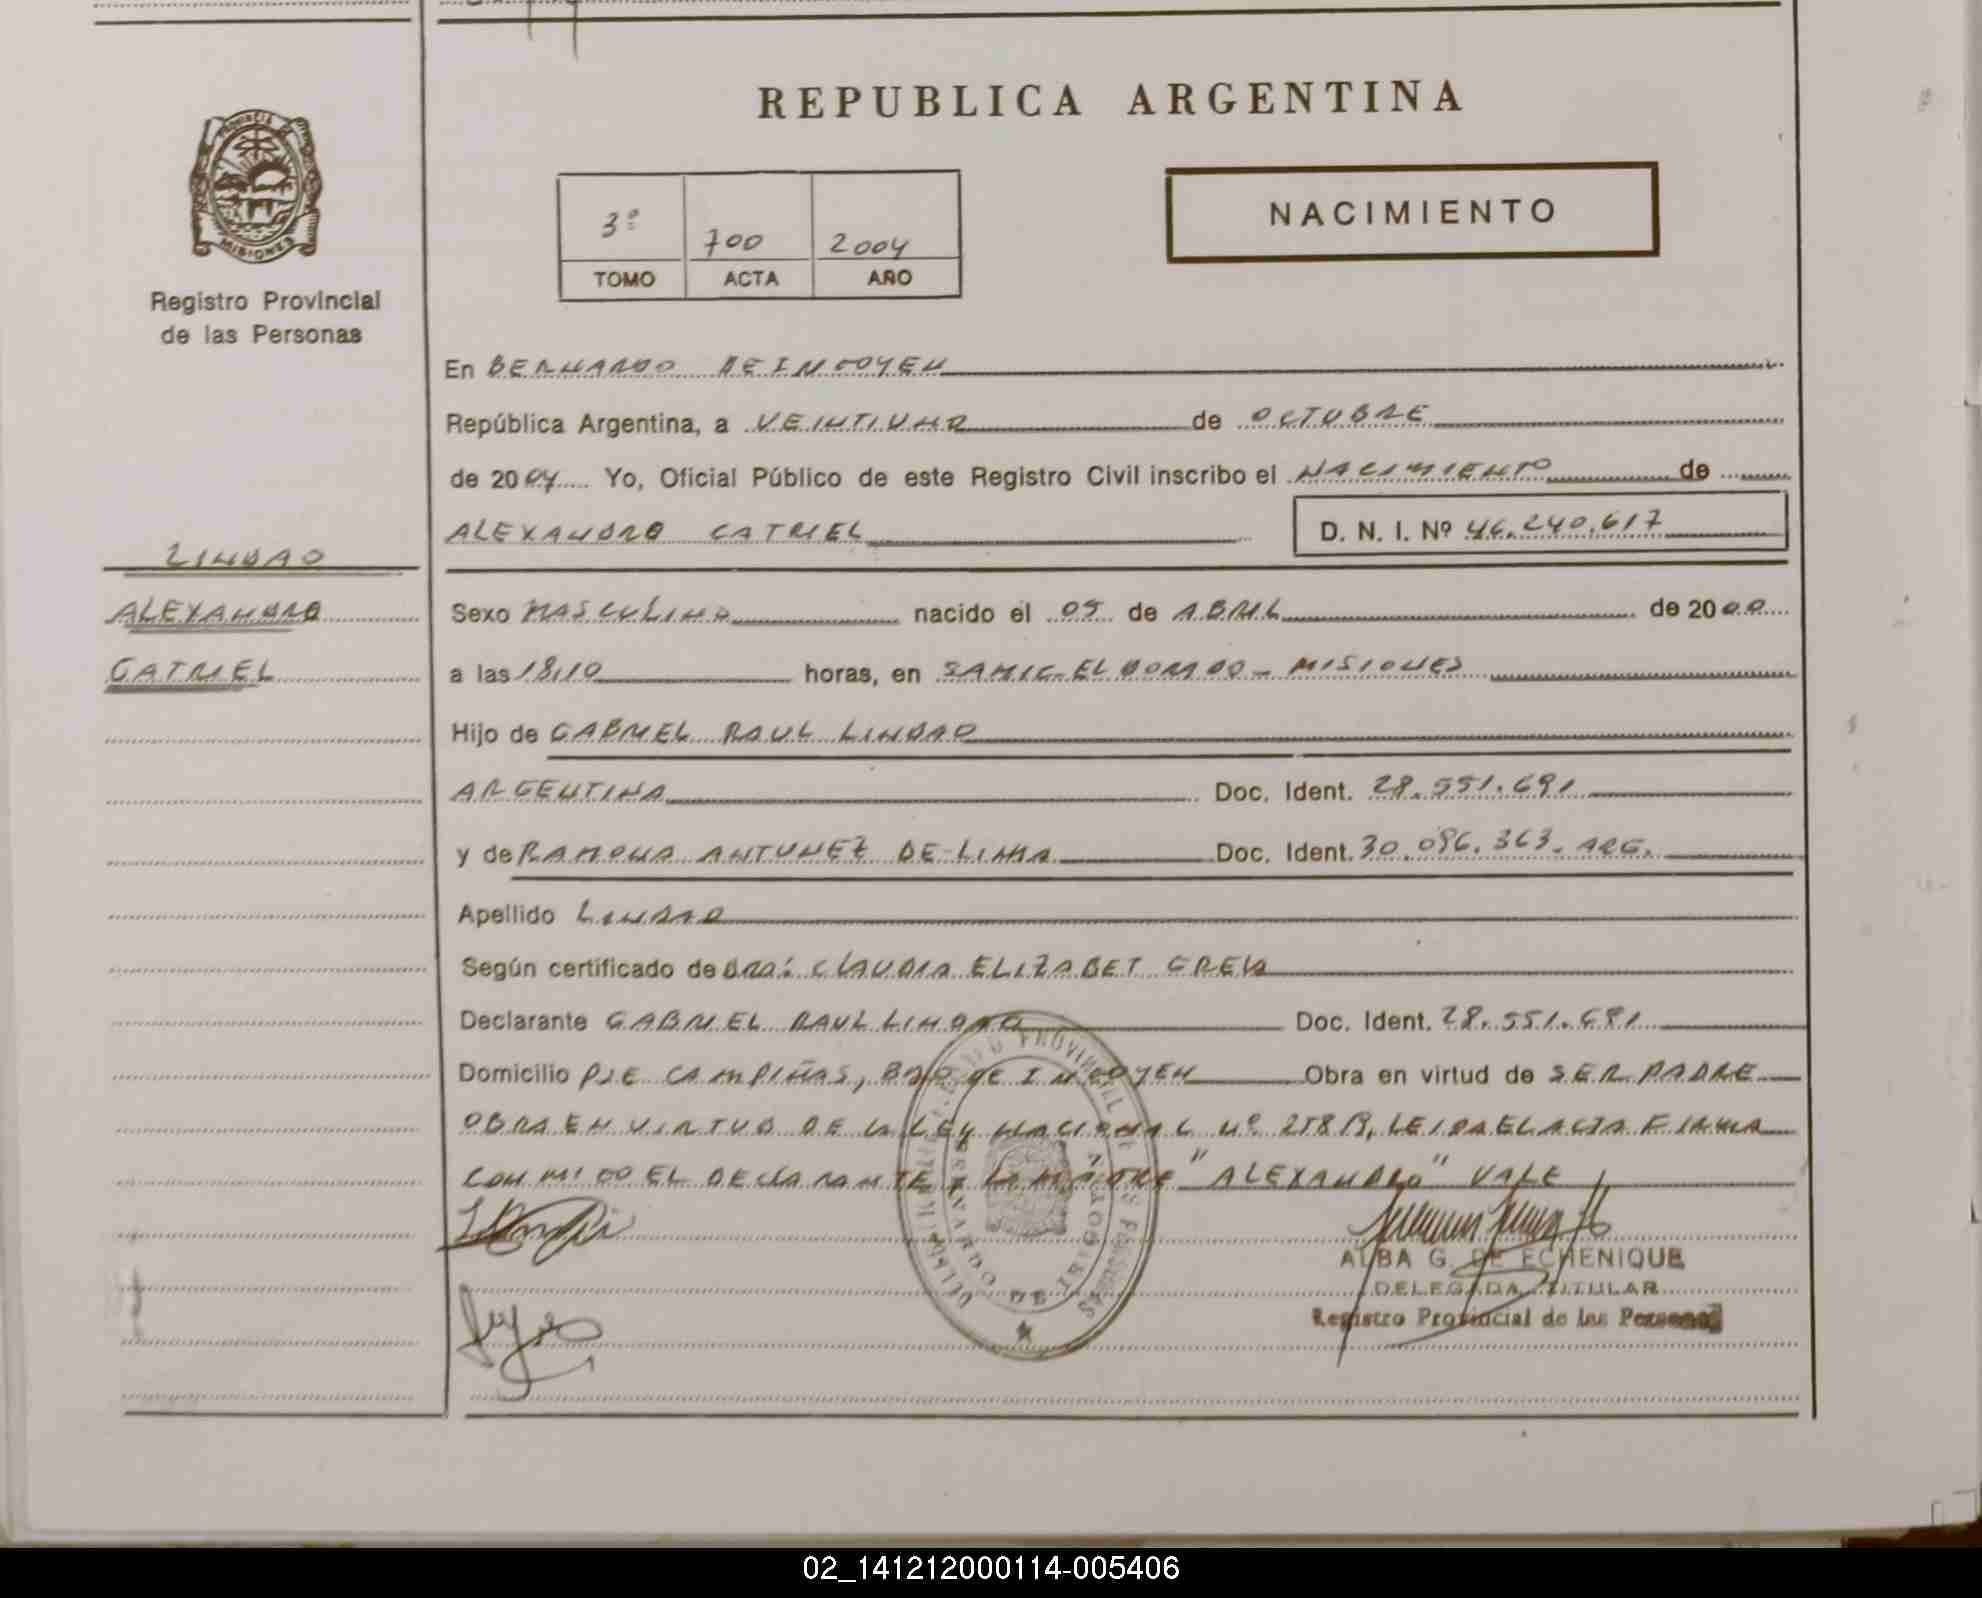 REPUBLICA ARGENTINA
PROVINCIA DE
MISIONES
Registro Provincial
de las Personas
3º 700 2004
TOMO ACTA AÑO
NACIMIENTO
En BERNARDO DE IRIGOYEN
República Argentina, a VEINTIUNO de OCTUBRE
de 2004 Yo, Oficial Público de este Registro Civil inscribo el NACIMIENTO de
ALEXANDRO CATRIEL D. N. I. Nº 46.240.617
LINDAO
ALEXANDRO
CATRIEL
Sexo MASCULINO nacido el 05 de ABRIL de 2000
a las 18,10 horas, en SAMIC-ELDORADO - MISIONES
Hijo de GABRIEL RAUL LINDAO
ARGENTINA Doc. Ident. 28.551.691
y de RAMONA ANTUNEZ DE LIMA Doc. Ident. 30.096.363. ARG.
Apellido LINDAO
Según certificado de DRA: CLAUDIA ELIZABET
Declarante GABRIEL RAUL LINDAO Doc. Ident. 28.551.691
Domicilio PJE CAMPIÑAS, BDO DE IRIGOYEN Obra en virtud de SER PADRE
OBRA EN VIRTUD DE LA LEY NACIONAL Nº LEIDA EL ACTA FIRMA
CONMIGO EL DECLARANTE Y LA MADRE "ALEXANDRO" VALE
ALBA G. DE ECHENIQUE
DELEGADA TITULAR
Registro Provincial de las Personas
BERNARDO DE IRIGOYEN
02_141212000114-005406